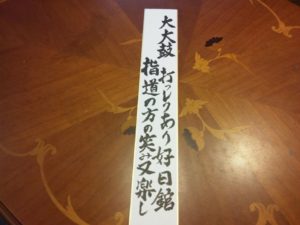 大太鼓 打つしりあり好日館
指道の方の笑み又楽し